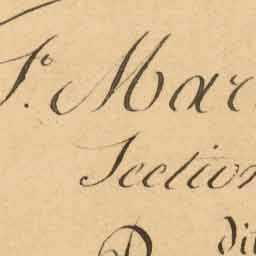 F.º Mar
Section
D dit